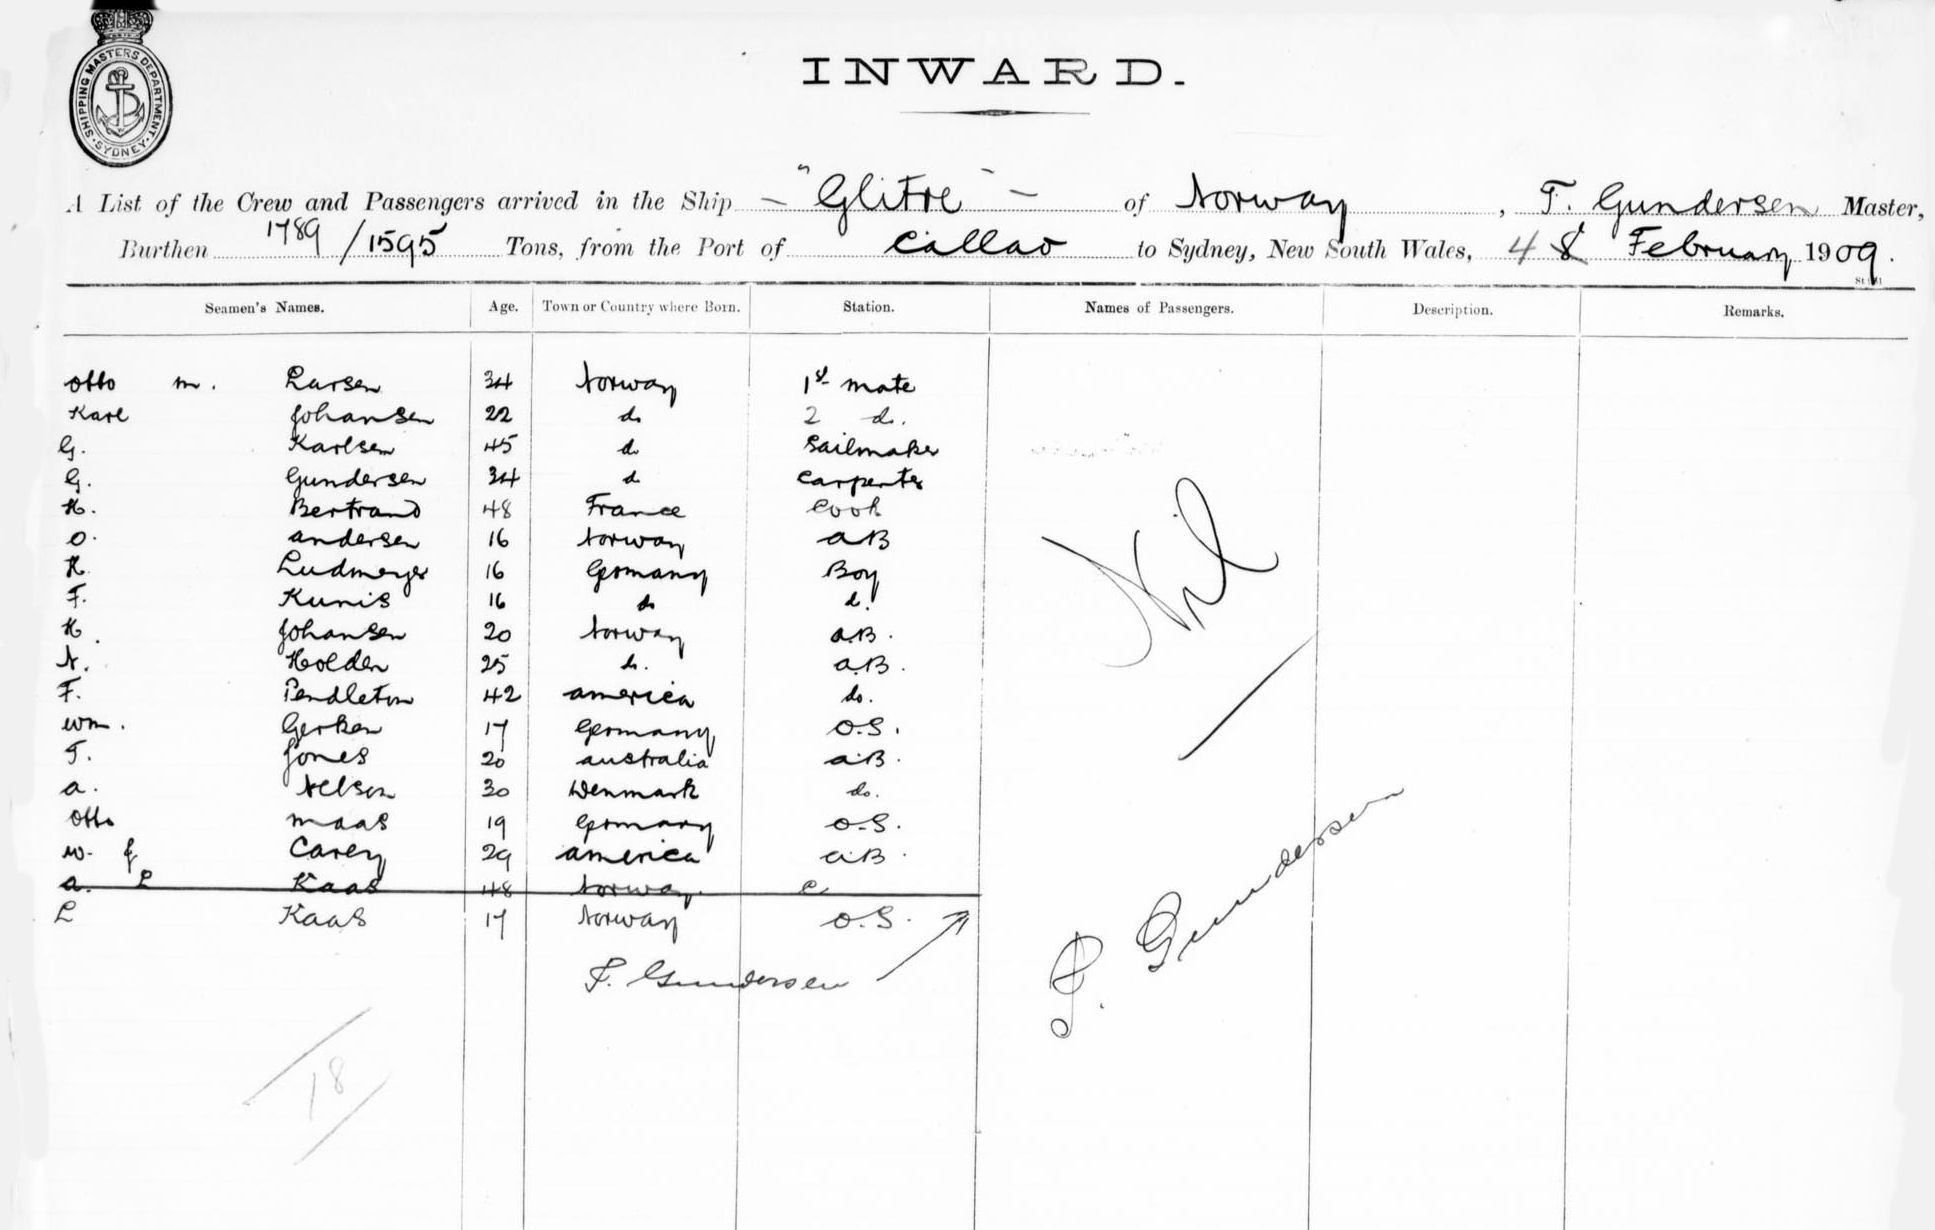 SHIPPING MASTERS DEPARTMENT
SYDNEY
INWARD.
A List of the Crew and Passengers arrived in the Ship "Glitre" of Norway, T. Gundersen Master,
Burthen 1789/1595 Tons, from the Port of Callao to Sydney, New South Wales, 4 8 February 1909.
Seamen's Names. Age. Town or Country where Born. Station. Names of Passengers. Description. Remarks.
Otto M. Larsen 34 Norway 1st mate
Karl Johansen 22 do 2 do.
G. Karlsen 45 do Sailmaker
G. Gundersen 34 do Carpenter
H. Bertrand 48 France Cook
O. Andersen 16 Norway AB
R. Ludmeyer 16 Germany Boy
F. Kunis 16 do d.
H. Johansen 20 Norway A.B.
N. Holden 25 do. A.B.
F. Pendleton 42 America do.
Wm. Gerken 17 Germany O.S.
T. Jones 20 Australia A.B.
A. Nelson 30 Denmark do.
Otto Maas 19 Germany O.S.
W. J. Carey 29 America A.B.
A. L Kaas 48 Norway
L Kaas 17 Norway O.S.
Nil
T. Gundersen
T. Gundersen
18